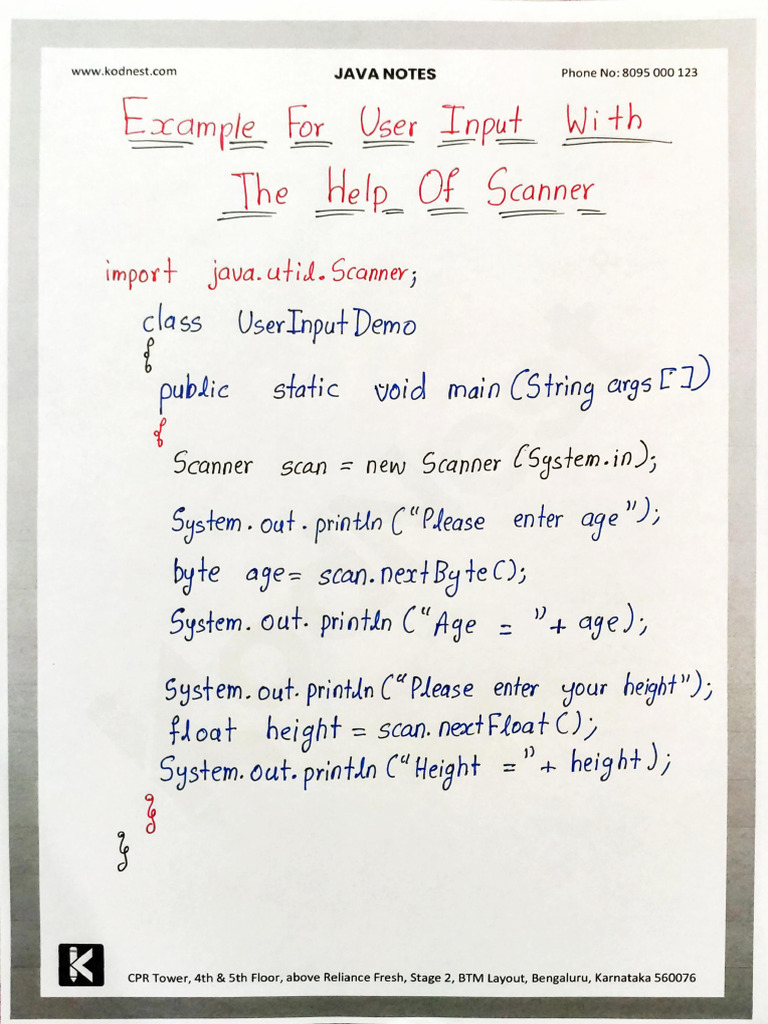 www.kodnest.com JAVA NOTES Phone No: 8095 000 123
Example For User Input With
The Help Of Scanner
import java.utid.Scanner;
class UserInputDemo
{
public static void main (String args [])
{
Scanner scan = new Scanner (System.in);
System.out.println ("Please enter age");
byte age= scan.nextByte();
System.out.println ("Age = "+ age);
System.out.println ("Please enter your height");
float height = scan.nextFloat();
System.out.println ("Height ="+ height);
}
}
K
CPR Tower, 4th & 5th Floor, above Reliance Fresh, Stage 2, BTM Layout, Bengaluru, Karnataka 560076